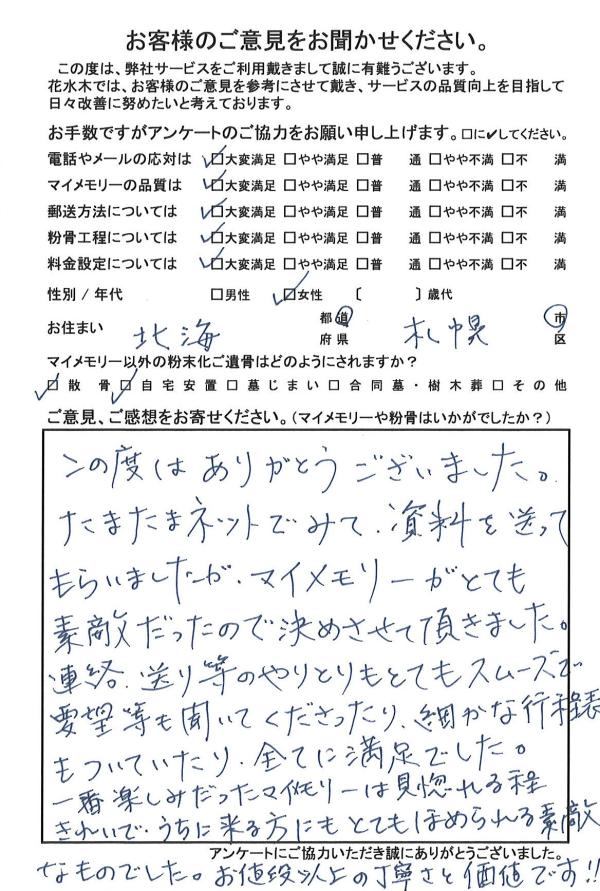 お客様のご意見をお聞かせください。
この度は、弊社サービスをご利用戴きまして誠に有難うございます。
花水木では、お客様のご意見を参考にさせて戴き、サービスの品質向上を目指して
日々改善に努めたいと考えております。
お手数ですがアンケートのご協力をお願い申し上げます。□に✔してください。
電話やメールの応対は ☑大変満足 □やや満足 □普 通 □やや不満 □不 満
マイメモリーの品質は ☑大変満足 □やや満足 □普 通 □やや不満 □不 満
郵送方法については ☑大変満足 □やや満足 □普 通 □やや不満 □不 満
粉骨工程については ☑大変満足 □やや満足 □普 通 □やや不満 □不 満
料金設定については ☑大変満足 □やや満足 □普 通 □やや不満 □不 満
性別 / 年代 □男性 ☑女性 〔 〕歳代
お住まい 北海 都道府県 札幌 市区
マイメモリー以外の粉末化ご遺骨はどのようにされますか？
☑散 骨 ☑自宅安置 □墓じまい □合同墓・樹木葬 □その他
ご意見、ご感想をお寄せください。（マイメモリーや粉骨はいかがでしたか？）
この度はありがとうございました。
たまたまネットでみて、資料を送って
もらいましたが、マイメモリーがとても
素敵だったので決めさせて頂きました。
連絡、送り等のやりとりもとてもスムーズで
要望等も聞いてくださったり、細かな行程表
もついていたり、全てに満足でした。
一番楽しみだったマイメモリーは見惚れる程
きれいで、うちに来る方にもとてもほめられる素敵
アンケートにご協力いただき誠にありがとうございました。
なものでした。お値段以上の丁寧さと価値です!!